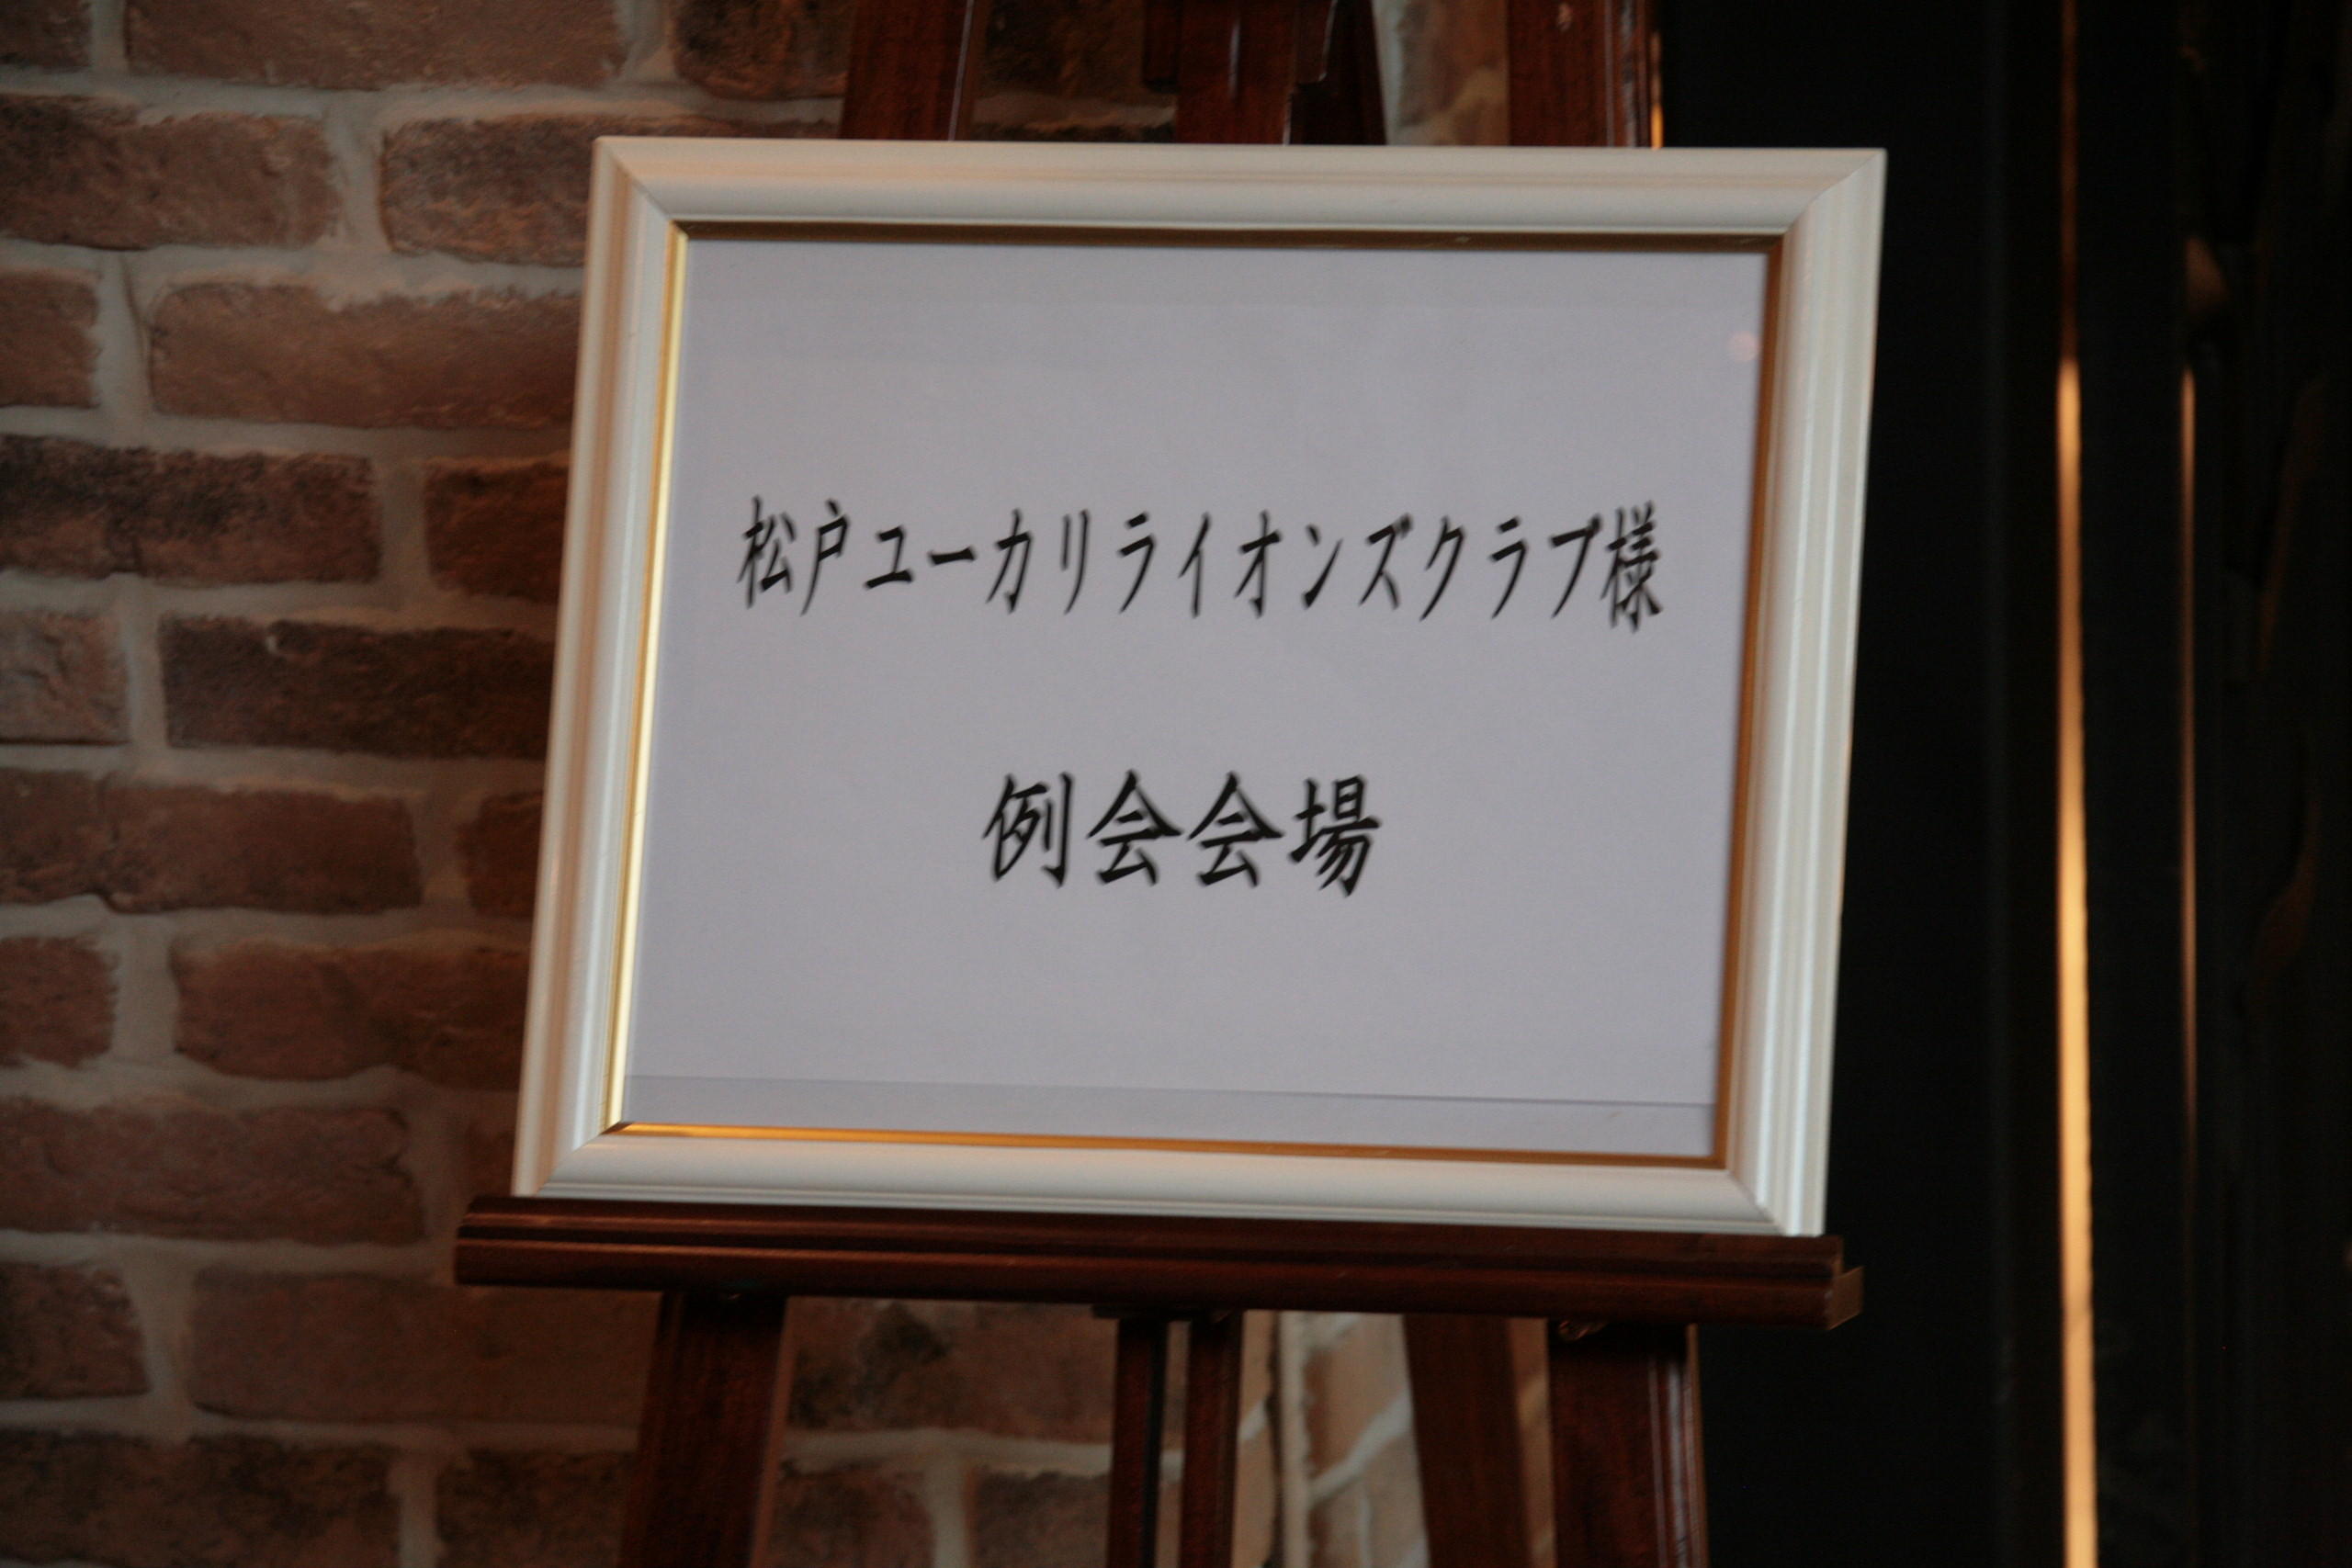 松戸ユーカリライオンズクラブ様
例会会場